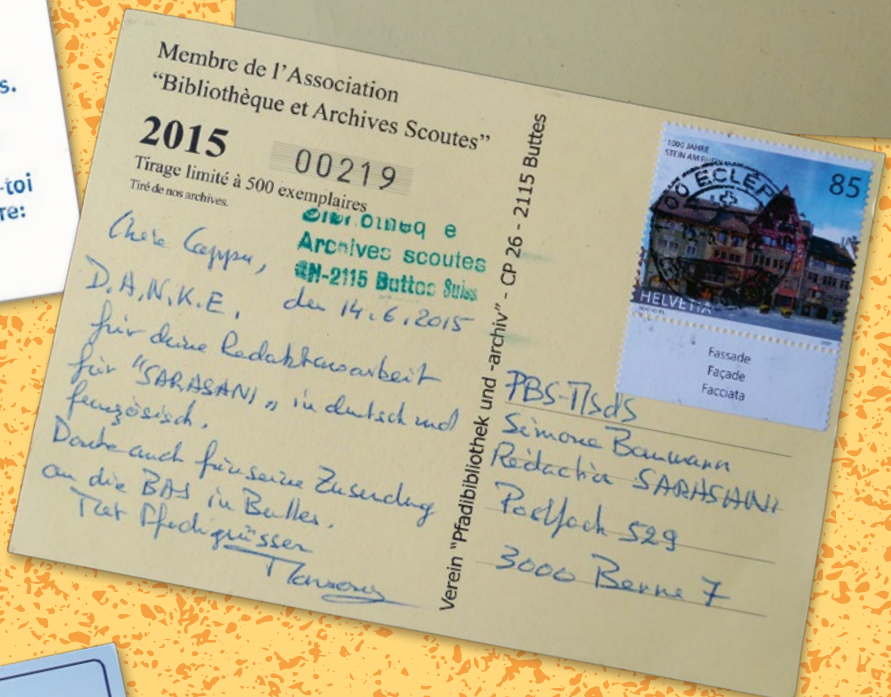 s.
-toi
re:
Membre de l'Association
“Bibliothèque et Archives Scoutes”
2015
00219
Tirage limité à 500 exemplaires
Tiré de nos archives.
Archives scoutes
CH-2115 Buttes Suiss
Chère Cappu,
D.A.N.K.E, den 14.6.2015
für deine Redaktionsarbeit
für "SARASANI" in deutsch und
französisch.
Danke auch für seine Zusendung
an die BAS in Buttes.
Mit Pfadigrüssen
Verein "Pfadibibliothek und -archiv" - CP 26 - 2115 Buttes
1000 JAHRE
STEIN AM RHEIN
85
ECLÉP
HELVETIA
Fassade
Façade
Facciata
PBS-MSdS
Simone Baumann
Rédaction SARASANI
Postfach 529
3000 Berne 7